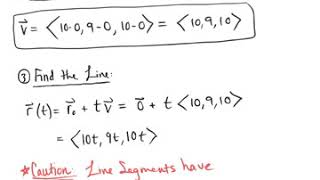 v⃗ = ⟨10-0, 9-0, 10-0⟩ = ⟨10,9,10⟩
③ Find the Line:
r⃗(t) = r⃗₀ + t v⃗ = 0⃗ + t ⟨10,9,10⟩
= ⟨10t, 9t, 10t⟩
*Caution: Line Segments have